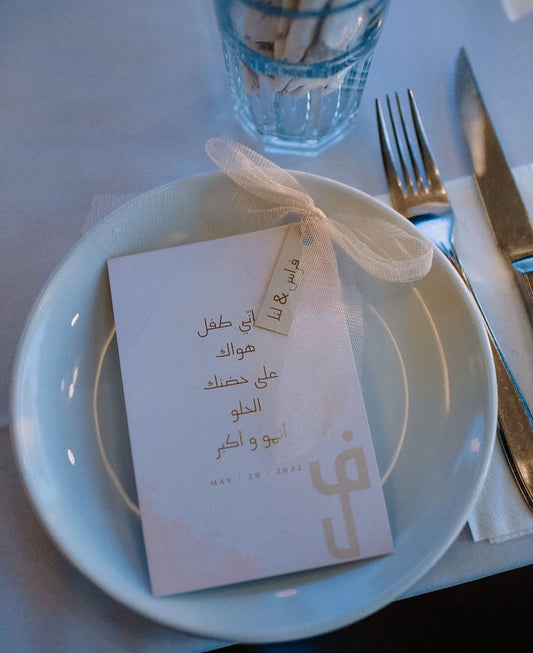 فراس & لنا
أني كفل
هواك
على حضنك
الحلو
أنمو و أكبر
MAY | 20 | 2022